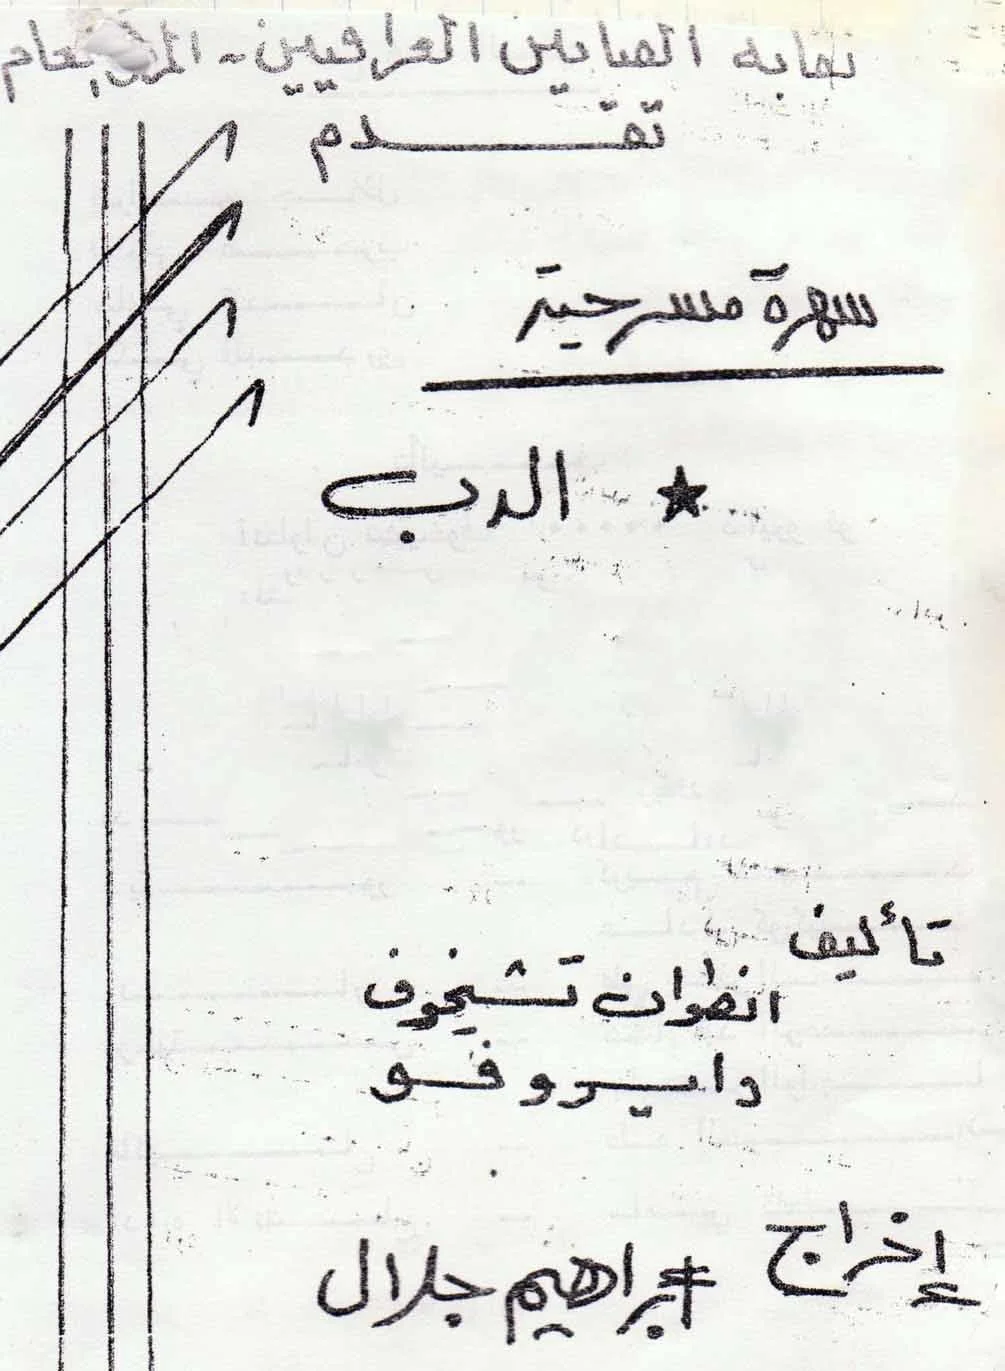 نقابه الفنانين العراقيين - المركز العام
تقـــدم
سهرة مسرحية
★ الدب
تأليف
انطوان تشيخوف
داريو فو
إخراج
إبراهيم جلال